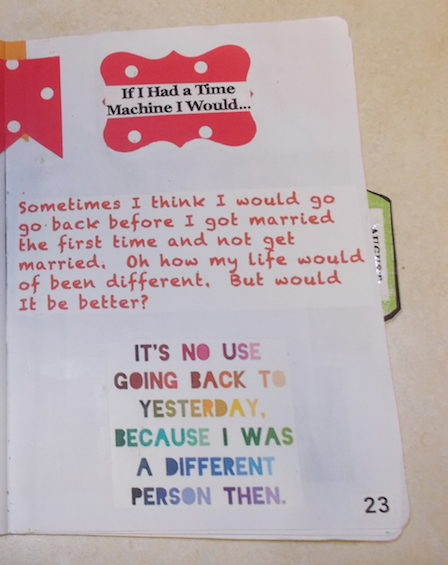 If I Had a Time
Machine I Would...
Sometimes I think I would go
go back before I got married
the first time and not get
married. Oh how my life would
of been different. But would
It be better?
IT'S NO USE
GOING BACK TO
YESTERDAY,
BECAUSE I WAS
A DIFFERENT
PERSON THEN.
23